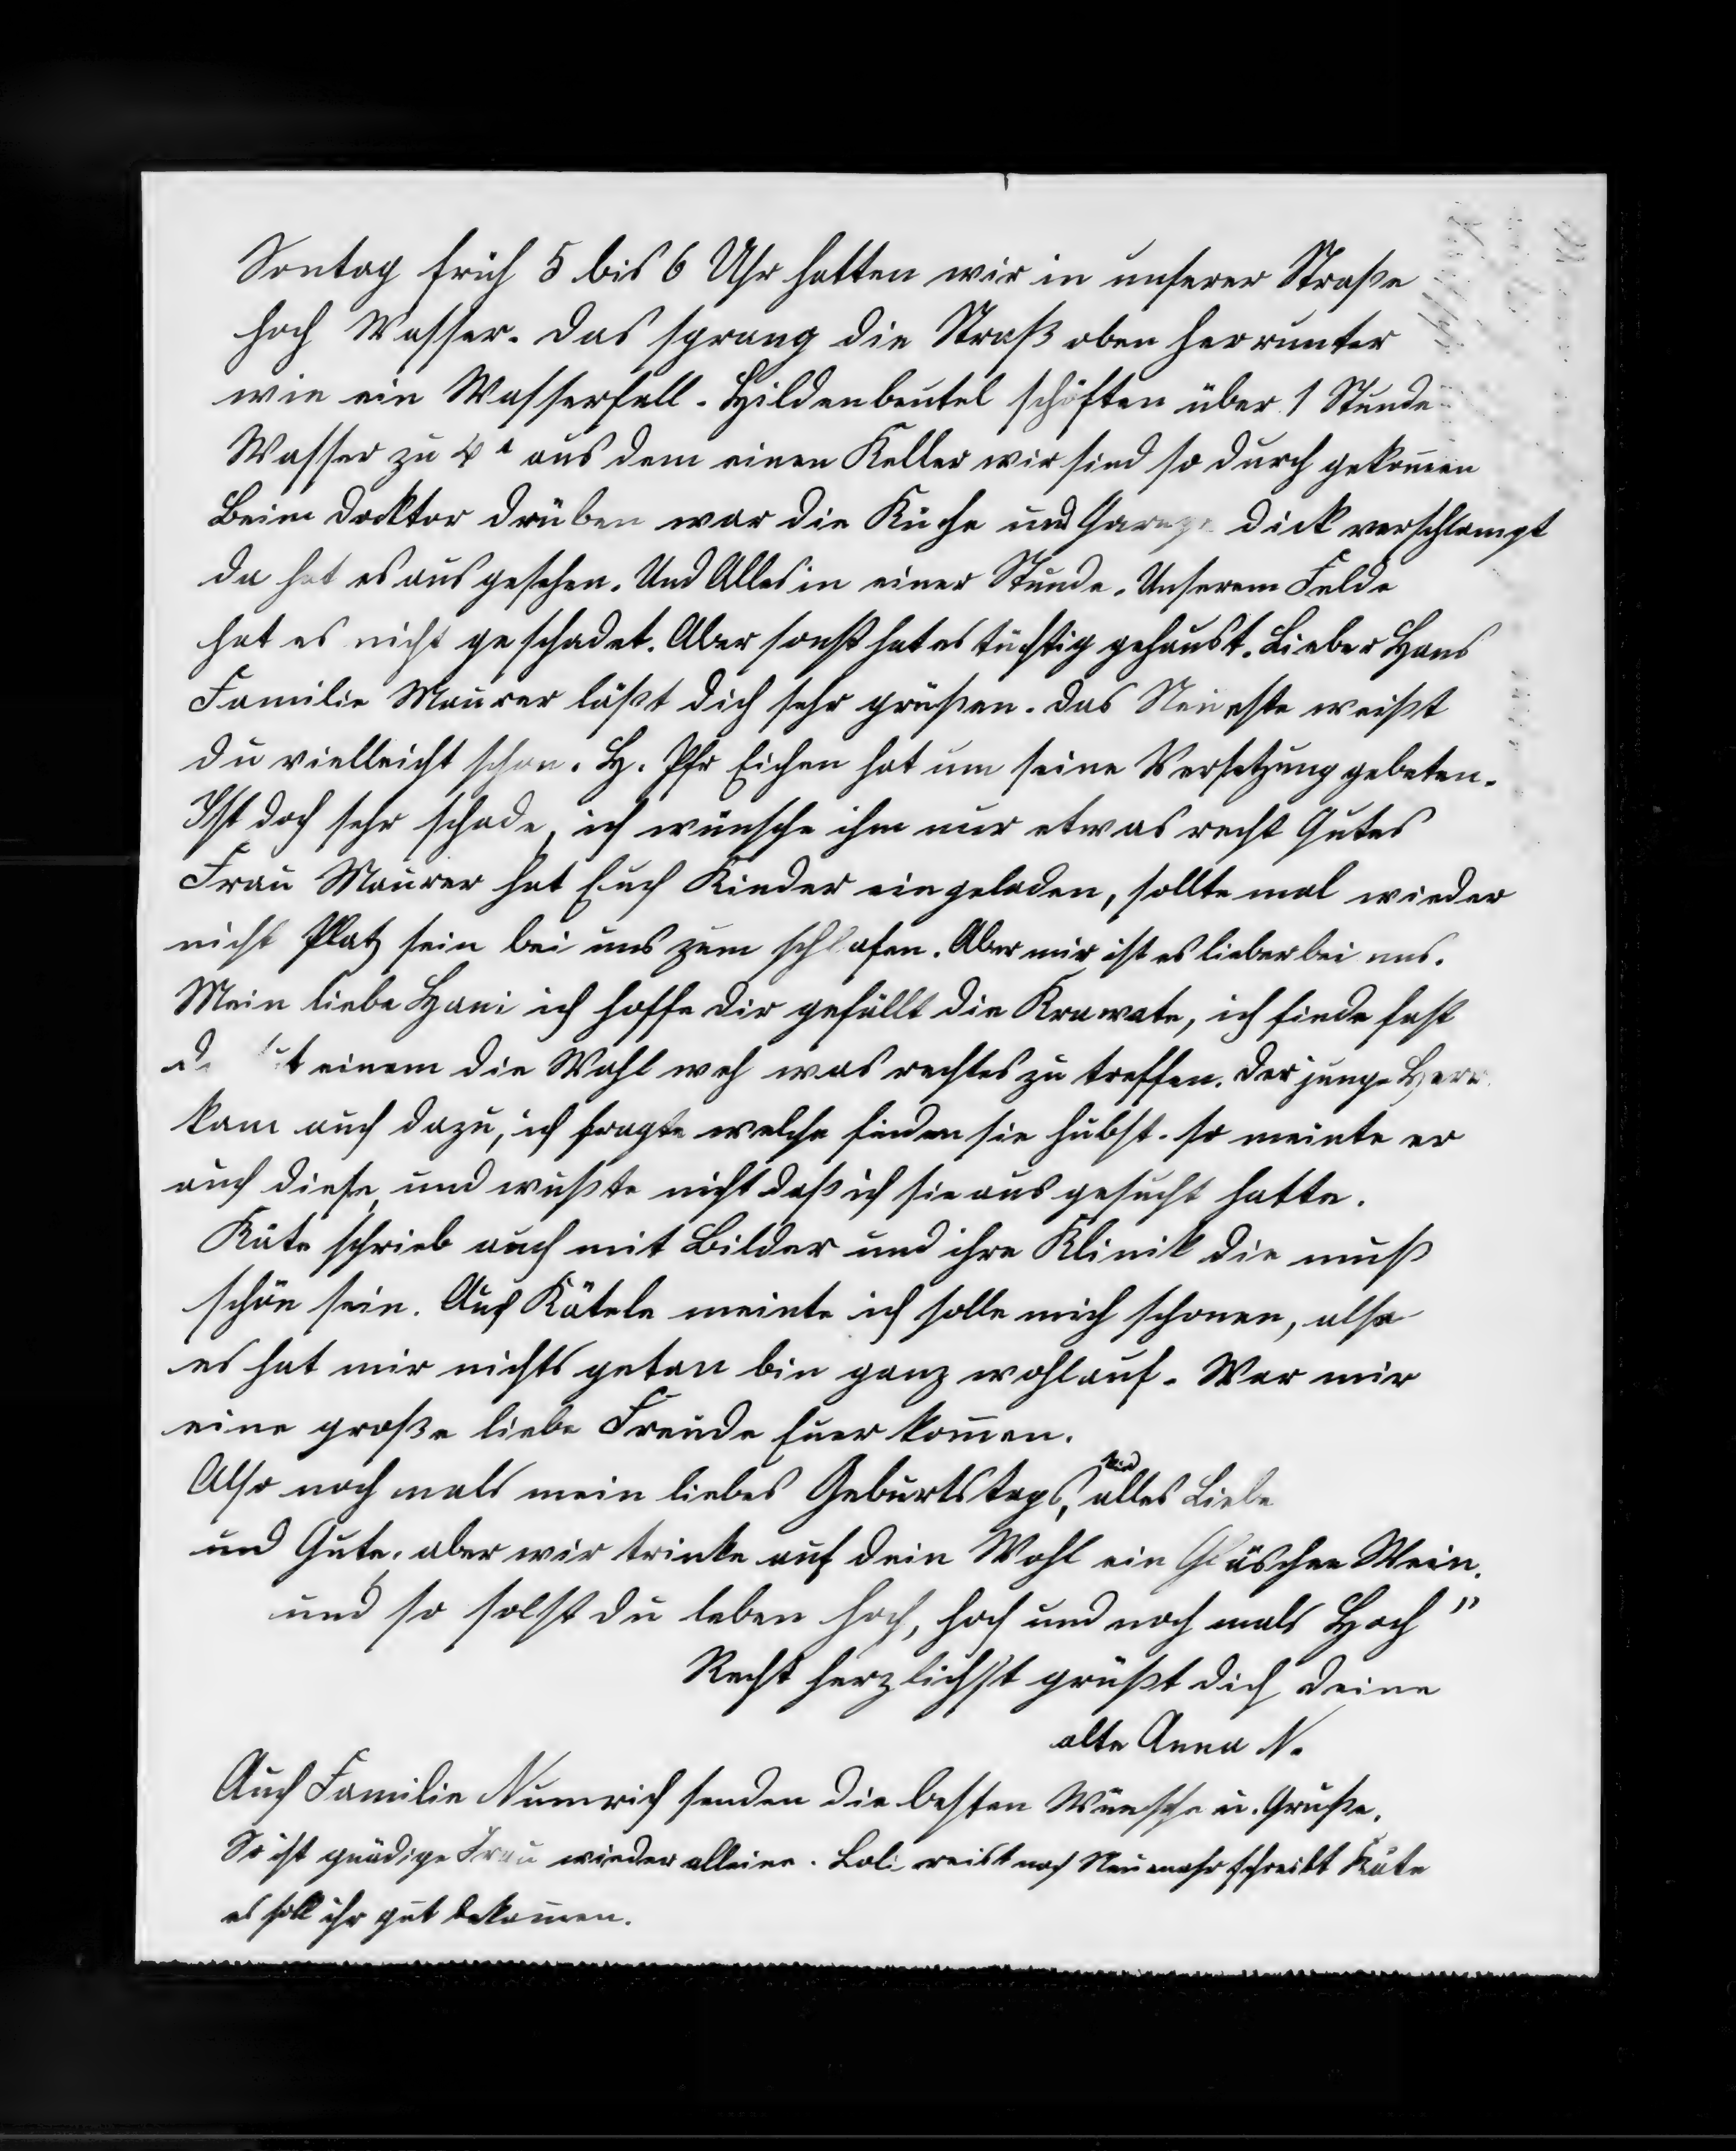 Sontag früh 5 bis 6 Uhr hatten wir in unserer Straße
hoch Wasser. Das sprang die Straß oben herrunter
wie ein Wasserfall. Hildenbeutel schöften über 1 Stunde
Wasser zu aus dem einen Keller wir sind so durch gekommen
Beim Docktor drüben war die Küche und Garage dick verschlampt
da hat es aus gesehen. Und Alles in einer Stunde. Unserem Felde
hat es nicht geschadet. Aber sonst hat es tüchtig gehaust. Lieber Hans
Familie Maurer läßt dich sehr grüßen. Das Neueste weißt
du vielleicht schon. H. Pfr Eichen hat um seine Versetzung gebeten.
Ist doch sehr schade, ich wünsche ihm nur etwas recht Gutes
Frau Maurer hat Euch Kinder eingeladen, sollte mal wieder
nicht Platz sein bei uns zum schlafen. Aber mir ist es lieber bei uns.
Mein liebe Hani ich hoffe dir gefällt die Krawate, ich finde fast
einem die Wahl weh was rechtes zu treffen. Der junge Herr
kam auch dazu, ich fragte welche finden sie hübst. so meinte er
auch diese, und wußte nicht daß ich sie aus gesucht hatte.
Käte schrieb auch mit Bilder und ihre Klinik die muß
schön sein. Auch Kätele meinte ich solle mich schonen, also
es hat mir nichts getan bin ganz wohlauf. War mir
eine große liebe Freude Euer kommen.
Also noch mals mein liebes Geburtstags, kind alles Liebe
und Gute. aber wir trinke auf dein Wohl ein Gläschen Wein.
und so solst du leben hoch, hoch und noch mals Hoch"
Recht herzlichst grüßt dich deine
alte Anna N.
Auch Familie Numrich senden die besten Wünsche u. Grüße.
So ist gnädige Frau wieder alleine. Loli reist nach Neuenahr schreibt Käte
es soll ihr gut bekommen.